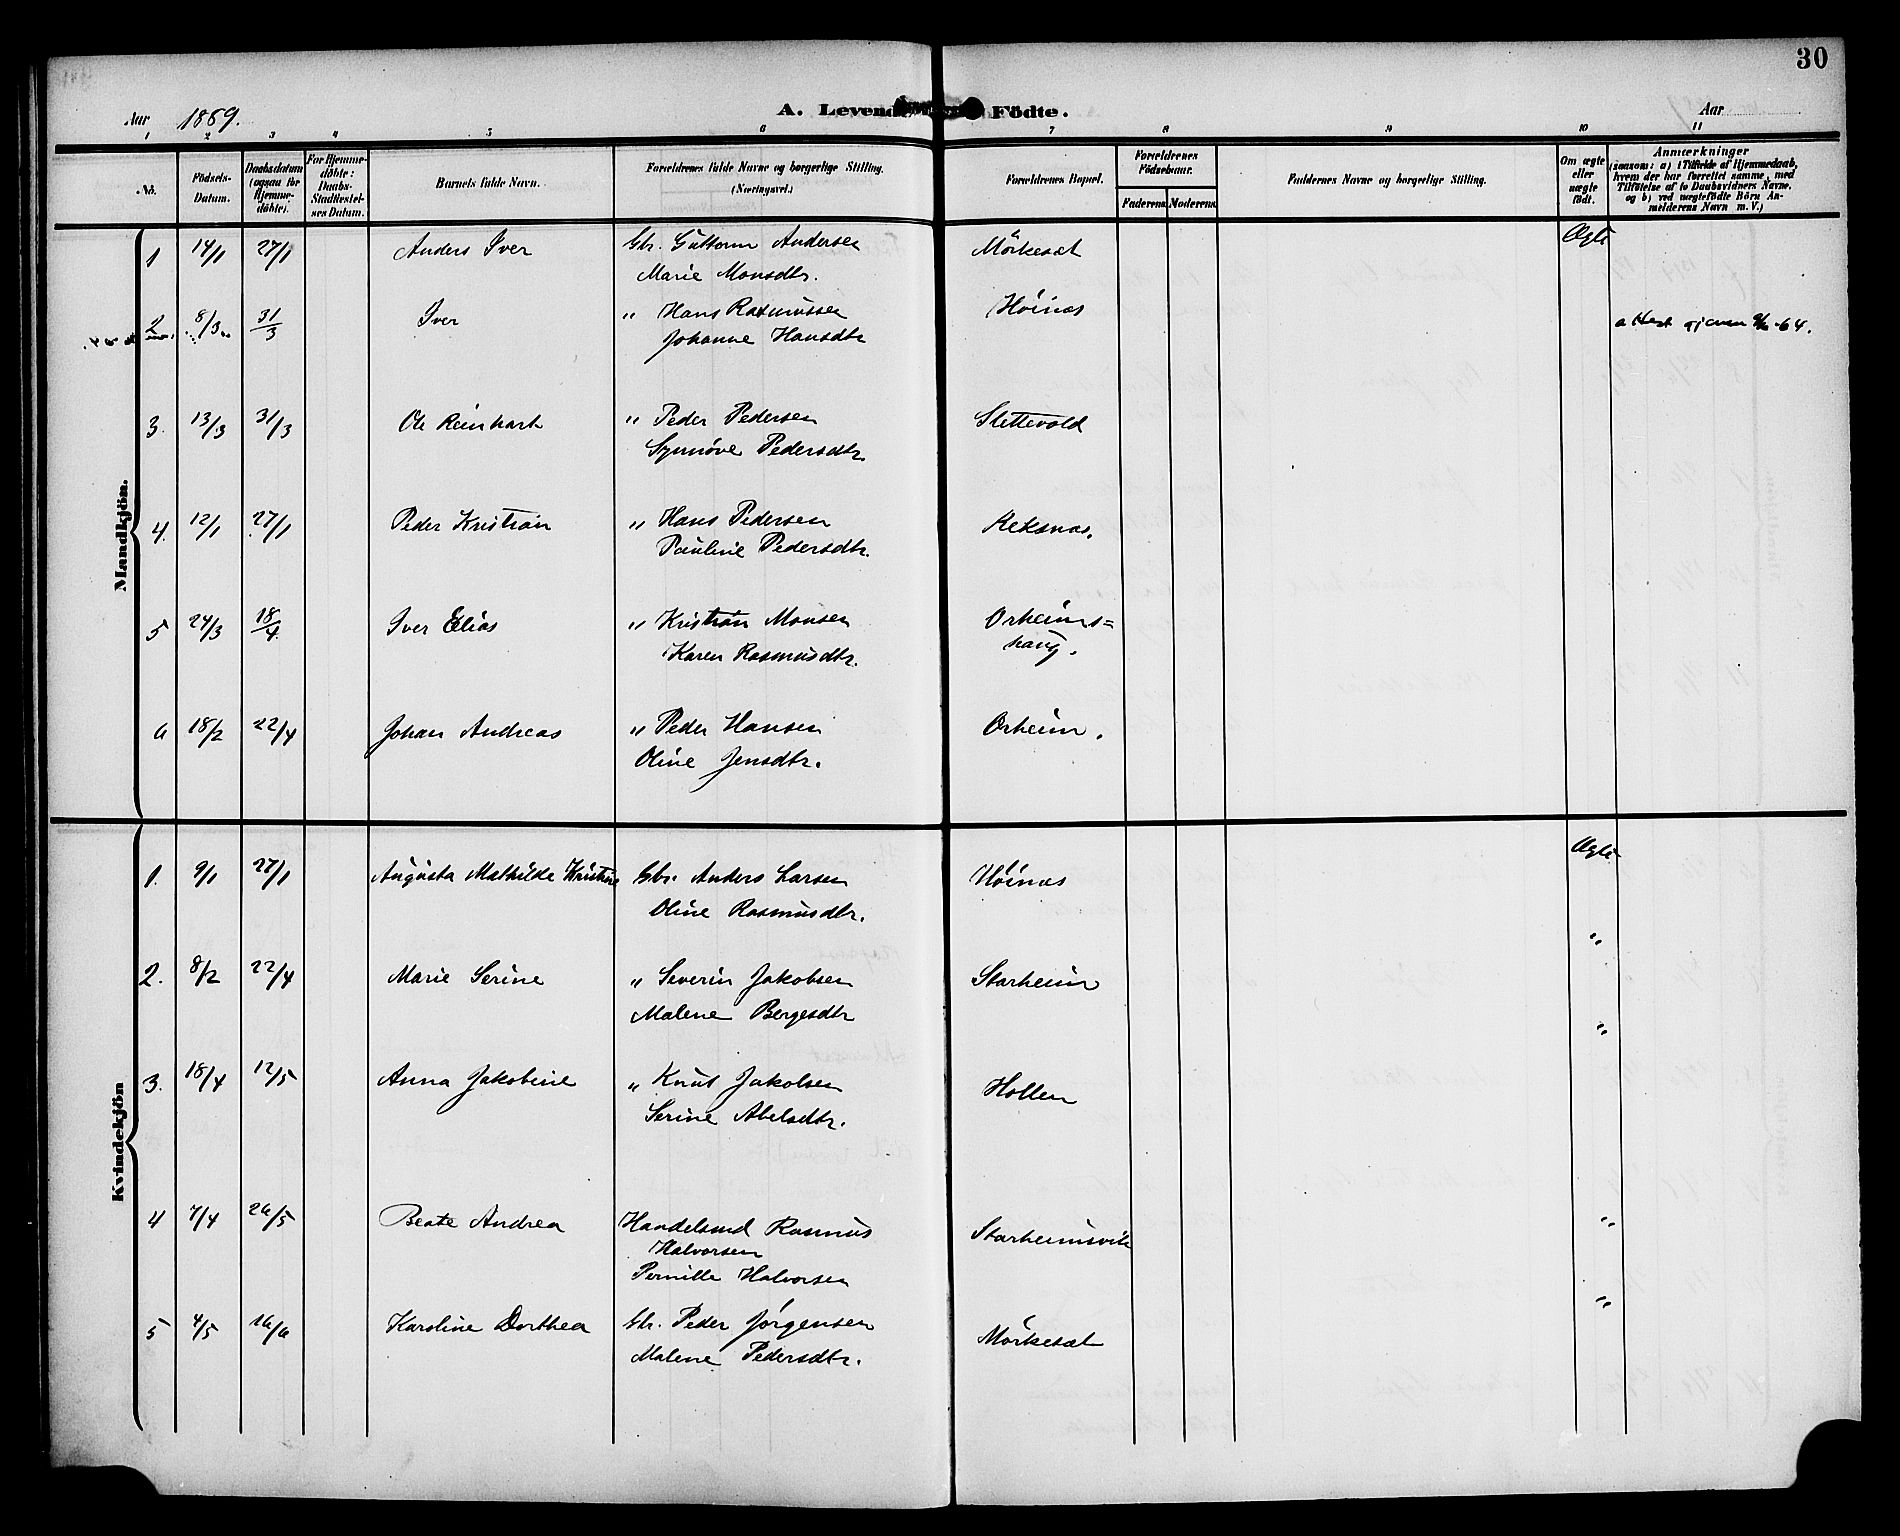 30
Aar 1889. A. Levende Födte. Aar
1 2 3 4 5 6 7 8 9 10 11
No. Födsels-Datum. Daabsdatum (ogsaa for Hjemmedöbte). For Hjemmedöbte: Daabs-Stadfestelses Datum. Barnets fulde Navn. Forældrenes fulde Navne og borgerlige Stilling. (Næringsvei.) Forældrenes Bopæl. Forældrenes Födselsaar. Faderens Moderens Faddernes Navne og borgerlige Stilling. Om ægte eller uægte födt. Anmærkninger (saasom: a) i Tilfælde af Hjemmedaab, hvem der har forrettet samme, med Tilföielse af to Daabsvidners Navne, og b) ved uægtefödte Börn Anmelderens Navn m. V.)
Mandkjön.
1 14/1 27/1 Anders Iver Gbr. Guttorm Andersen Mörkesæt Ægte
Marie Monsdtr.
2 8/3 31/3 Iver " Hans Rasmussen Höinæs -64.
Johanne Hansdtr
3. 13/3 31/3 Ole Reinhart " Peder Pedersen Slettevold
Synnöve Pedersdtr.
4. 12/1 27/1 Peder Kristian " Hans Pedersen Reksnæs.
Pauline Pedersdtr.
5 24/3 18/4 Iver Elias " Kristian Monsen Orheims=
Karen Rasmusdtr. haug.
6 18/2 22/4 Johan Andreas " Peder Hansen Orheim.
Oline Jensdtr.
Kvindekjön
1. 9/1 27/1 Augusta Mathilde Kristine Gbr. Anders Larsen Höinæs Ægte
Oline Rasmusdtr.
"
2. 8/2 22/4 Marie Serine " Severin Jakobsen Starheim
Malene Bergesdtr
"
3. 18/4 12/5 Anna Jakobine " Knut Jakobsen Hollen
Serine Abelsdtr.
4 7/4 26/5 Beate Andrea Handelsmd Rasmus Starheimsvik "
Halvorsen
Pernille Halvorsen
"
5 4/5 16/6 Karoline Dorthea Gbr. Peder Jörgensen Mörkesæt
Malene Pedersdtr.